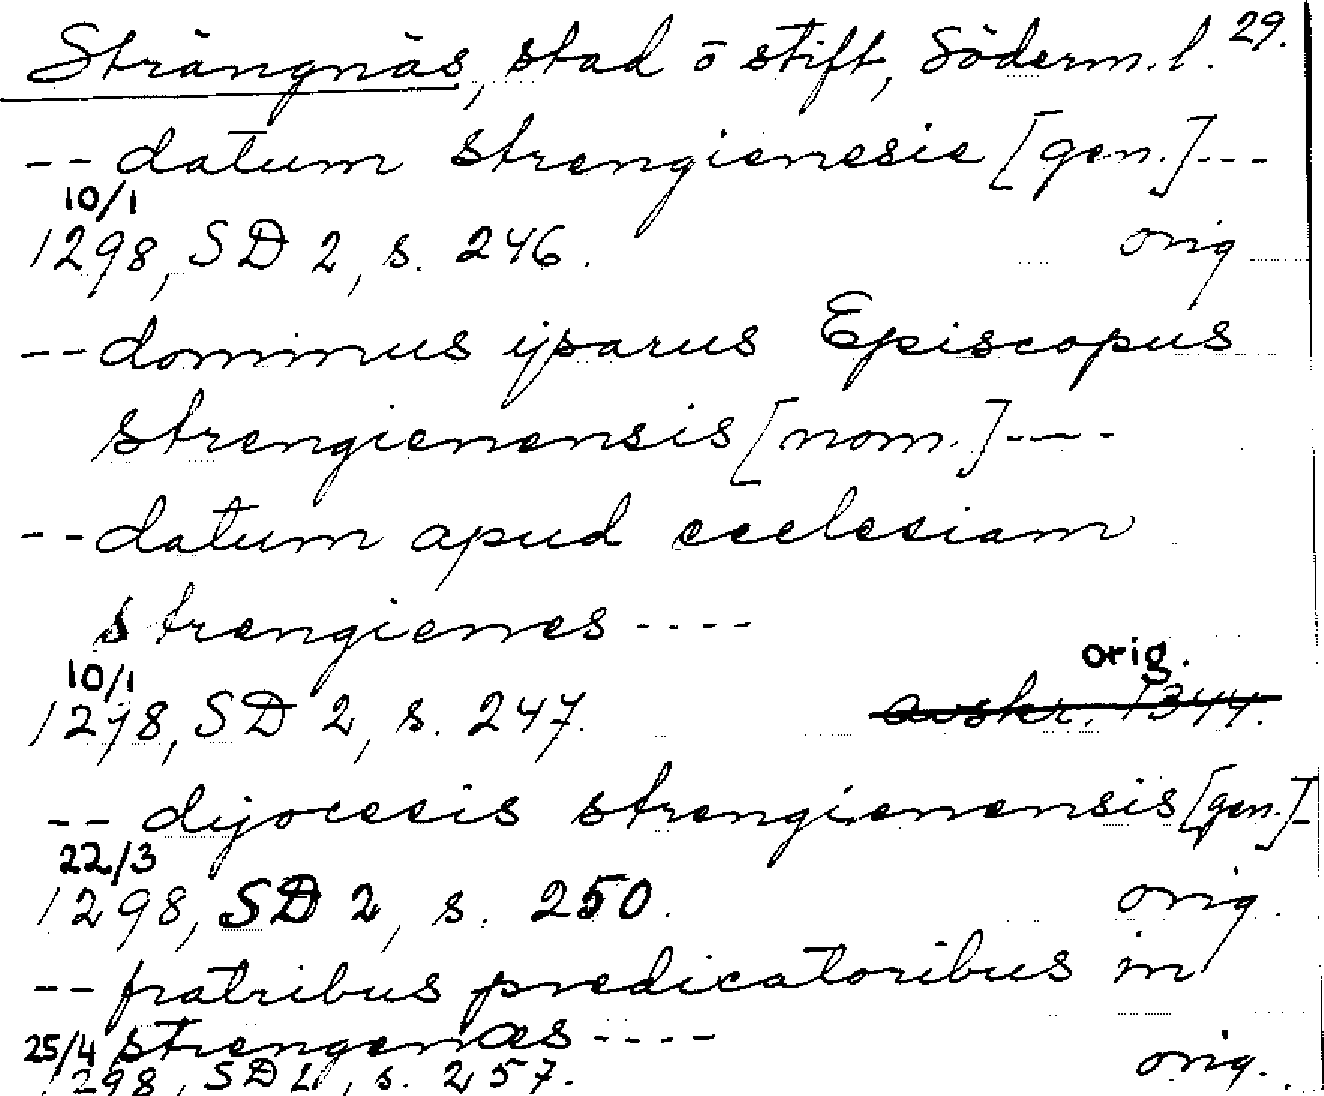 Strängnäs, stad o stift, Söderm. l. 29.
-- datum strengienesie [gen.]---
10/1
1298, SD 2, s. 246. orig
-- dominus ysarus Episcopus
strengienensis [nom.]----
-- datum apud ecclesiam
strengienes ----
10/1 orig.
1298, SD 2, s. 247. avskr. 1344.
-- dyocesis strengienensis [gen.]-
22/3
1298, SD 2, s. 250. orig.
-- fratribus predicatoribus in
strengenæs ----
25/4
1298, SD 2, s. 257. orig.